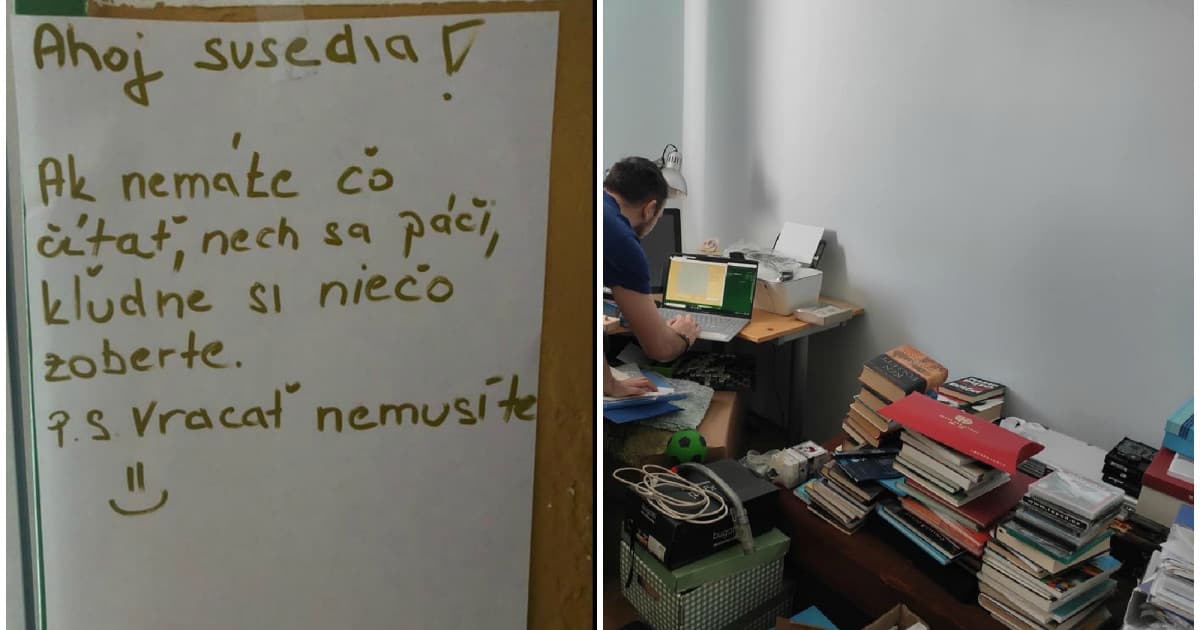 Ahoj susedia!
Ak nemáte čo
čítať, nech sa páči,
kľudne si niečo
zoberte.
P.S. Vracať nemusíte